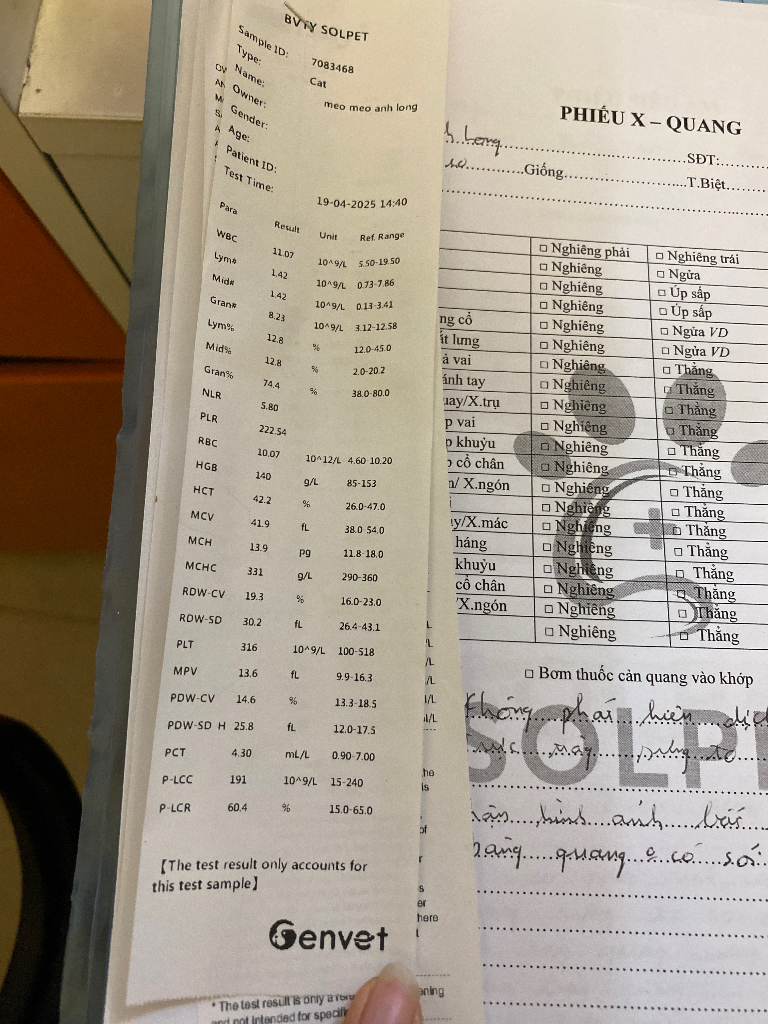 BVTY SOLPET
Sample ID: 7083468
Type: Cat
Name:
Owner: meo meo anh long
Gender:
Age:
Patient ID:
Test Time: 19-04-2025 14:40
Para Result Unit Ref. Range
WBC 11.07 10^9/L 5.50-19.50
Lym# 1.42 10^9/L 0.73-7.86
Mid# 1.42 10^9/L 0.13-3.41
Gran# 8.23 10^9/L 3.12-12.58
Lym% 12.8 % 12.0-45.0
Mid% 12.8 % 2.0-20.2
Gran% 74.4 % 38.0-80.0
NLR 5.80
PLR 222.54
RBC 10.07 10^12/L 4.60-10.20
HGB 140 g/L 85-153
HCT 42.2 % 26.0-47.0
MCV 41.9 fL 38.0-54.0
MCH 13.9 pg 11.8-18.0
MCHC 331 g/L 290-360
RDW-CV 19.3 % 16.0-23.0
RDW-SD 30.2 fL 26.4-43.1
PLT 316 10^9/L 100-518
MPV 13.6 fL 9.9-16.3
PDW-CV 14.6 % 13.3-18.5
PDW-SD H 25.8 fL 12.0-17.5
PCT 4.30 mL/L 0.90-7.00
P-LCC 191 10^9/L 15-240
P-LCR 60.4 % 15.0-65.0
【The test result only accounts for
this test sample】
Genvet
* The test result is only a
and not intended for
PHIẾU X – QUANG
Long SĐT:
Giống T.Biệt
□ Nghiêng phải □ Nghiêng trái
□ Nghiêng □ Ngửa
□ Nghiêng □ Úp sấp
□ Nghiêng □ Úp sấp
ng cổ □ Nghiêng □ Ngửa VD
ắt lưng □ Nghiêng □ Ngửa VD
ả vai □ Nghiêng □ Thẳng
ánh tay □ Nghiêng □ Thẳng
uay/X.trụ □ Nghiêng □ Thẳng
p vai □ Nghiêng □ Thẳng
p khuỷu □ Nghiêng □ Thẳng
p cổ chân □ Nghiêng □ Thẳng
n/ X.ngón □ Nghiêng □ Thẳng
□ Nghiêng □ Thẳng
ày/X.mác □ Nghiêng □ Thẳng
háng □ Nghiêng □ Thẳng
khuỷu □ Nghiêng □ Thẳng
cổ chân □ Nghiêng □ Thẳng
/X.ngón □ Nghiêng □ Thẳng
□ Nghiêng □ Thẳng
□ Bơm thuốc cản quang vào khớp
Không phát hiện
SOLP
hình ảnh
quang có